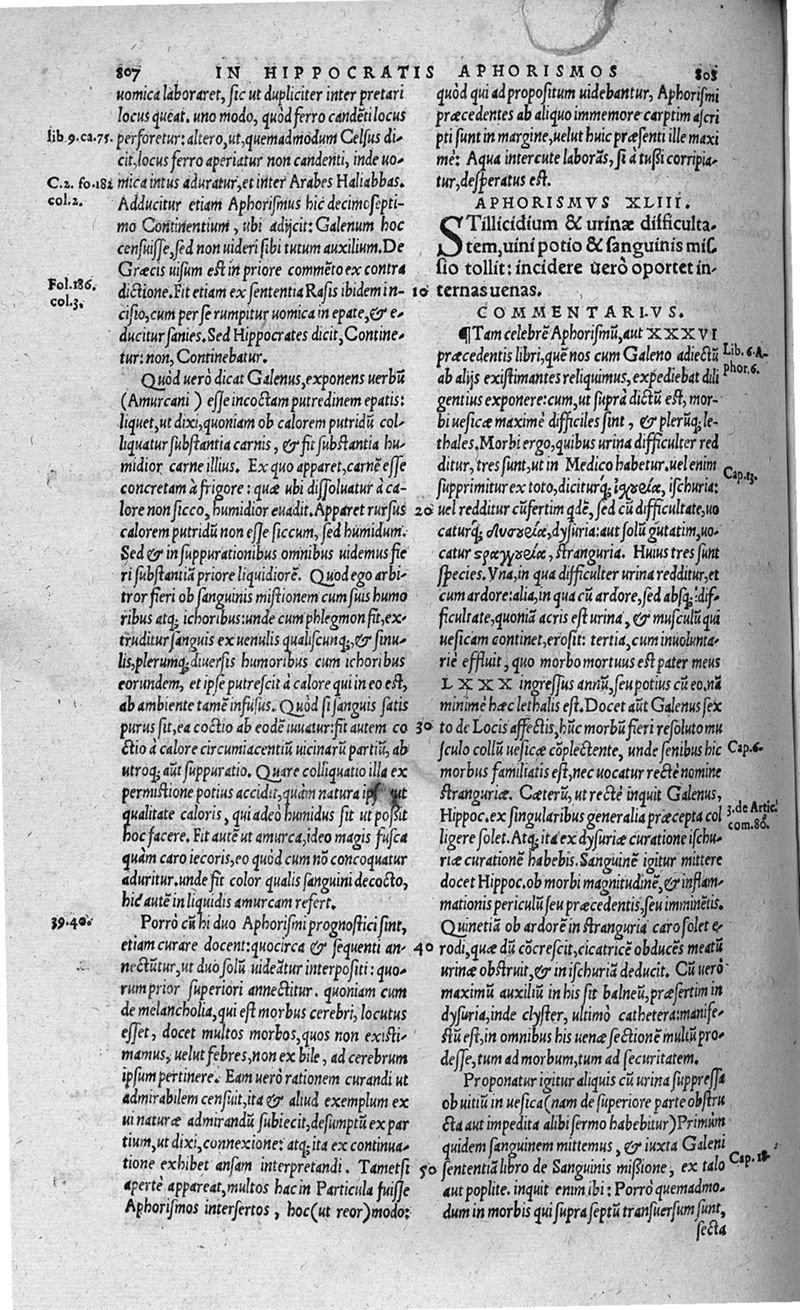 807 IN HIPPOCRATIS APHORISMOS 808
uomica laboraret, sic ut dupliciter interpretari
locus queat. uno modo, quòd ferro candẽti locus
lib. 9. ca. 75.
perforetur: altero, ut, quemadmodum Celsus di-
cit, locus ferro aperiatur non candenti, inde uo-
C. 2. fo. 182
col. 2.
mica intus aduratur, et inter Arabes Haliabbas.
Adducitur etiam Aphorismus hic decimosepti-
mo Continentium, ubi adijcit: Galenum hoc
censuisse, sed non uideri sibi tutum auxilium. De
Græcis uisum est in priore commẽto ex contra
Fol. 186.
col. 3.
dictione. Fit etiam ex sententia Rasis ibidem in-
cisio, cum per se rumpitur uomica in epate, & e-
ducitur sanies. Sed Hippocrates dicit, Contine-
tur: non, Continebatur.
Quòd uerò dicat Galenus, exponens uerbũ
(Amurcani) esse incoctam putredinem epatis:
liquet, ut dixi, quoniam ob calorem putridũ col-
liquatur substantia carnis, & fit substantia hu-
midior carne illius. Ex quo apparet, carnẽ esse
concretam à frigore: quæ ubi dissoluatur à ca-
lore non sicco, humidior euadit. Apparet rursus
calorem putridũ non esse siccum, sed humidum.
Sed & in suppurationibus omnibus uidemus fie
ri substantiã priore liquidiorẽ. Quod ego arbi-
tror fieri ob sanguinis mistionem cum suis humo
ribus atq; ichoribus: unde cum phlegmon fit, ex-
truditur sanguis ex uenulis qualiscunq;, & sinu-
lis, plerumq; diuersis humoribus cum ichoribus
eorundem, et ipse putrescit à calore qui in eo est,
ab ambiente tamẽ infusus. Quòd si sanguis satis
purus sit, ea coctio ab eodẽ iuuatur: fit autem co
ctio à calore circumiacentiũ uicinarũ partiũ, ab
utroq; aũt suppuratio. Quare colliquatio illa ex
permistione potius accidit, quàm natura ut
qualitate caloris, qui adeò humidus sit ut possit
hoc facere. Fit autẽ ut amurca, ideo magis fusca
quàm caro iecoris, eo quòd cum nõ concoquatur
aduritur. unde fit color qualis sanguini decocto,
hic autẽ in liquidis amurcam refert.
39. 40.
Porrò cũ hi duo Aphorismi prognostici sint,
etiam curare docent: quocirca & sequenti an-
nectũtur, ut duo solũ uideãtur interpositi: quo-
rum prior superiori annectitur. quoniam cum
de melancholia, qui est morbus cerebri, locutus
esset, docet multos morbos, quos non existi-
mamus, uelut febres, non ex bile, ad cerebrum
ipsum pertinere. Eam uerò rationem curandi ut
admirabilem censuit, ita & aliud exemplum ex
ui naturæ admirandũ subiecit, desumptũ ex par
tium, ut dixi, connexione: atq; ita ex continua-
tione exhibet ansam interpretandi. Tametsi
apertè appareat, multos hac in Particula fuisse
Aphorismos insertos, hoc (ut reor) modo:
quòd qui ad propositum uidebantur, Aphorismi
præcedentes ab aliquo immemore carptim ascri
pti sunt in margine, uelut huic præsenti ille maxi
mè: Aqua intercute laborãs, si à tussi corripia-
tur, desperatus est.
APHORISMVS XLIII.
STillicidium & urinæ difficulta-
tem, uini potio & sanguinis mis-
sio tollit: incidere uerò oportet in-
10 ternas uenas.
COMMENTARIVS.
¶ Tam celebrẽ Aphorismũ, aut XXXVI
Lib. 6. A-
phor. 6.
præcedentis libri, quẽ nos cum Galeno adiectũ
ab alijs existimantes reliquimus, expediebat dili
gentius exponere: cum, ut suprà dictũ est, mor-
bi uesicæ maximè difficiles sint, & plerũq; le-
thales. Morbi ergo, quibus urina difficulter red
Cap. 13.
ditur, tres sunt, ut in Medico habetur. uel enim
supprimitur ex toto, diciturq; ἰσχουρία, ischuria:
20 uel redditur cũfertim qdẽ, sed cũ difficultate, uo
caturq; δυσουρία, dysuria: aut solũ gutatim, uo-
catur στραγγουρία, stranguria. Huius tres sunt
species. Vna, in qua difficulter urina redditur, et
cum ardore: alia, in qua cũ ardore, sed absq; dif-
ficultate, quoniã acris est urina, & musculũ qui
uesicam continet, erosit: tertia, cum inuolunta-
riè effluit, quo morbo mortuus est pater meus
LXXX ingressus annũ, seu potius cũ eo. nã
minimè hæc lethalis est. Docet aũt Galenus sex
30 to de Locis affectis, hũc morbũ fieri resoluto mu
Cap. 6.
sculo collũ uesicæ cõplectente, unde senibus hic
morbus familiatis est, nec uocatur rectè nomine
stranguriæ. Cæterũ, ut rectè inquit Galenus,
3. de Artic.
com. 80.
Hippoc. ex singularibus generalia præcepta col
ligere solet. Atq; ita ex dysuriæ curatione ischu-
riæ curationẽ habebis. Sanguinẽ igitur mittere
docet Hippoc. ob morbi magnitudinẽ, & inflam-
mationis periculũ seu præcedentis, seu imminẽtis.
Quinetiã ob ardorẽ in stranguria caro solet e-
40 rodi, quæ dũ cõcrescit, cicatricẽ obducẽs meatũ
urinæ obstruit, & in ischuriã deducit. Cũ uerò
maximũ auxiliũ in his sit balneũ, præsertim in
dysuria, inde clyster, ultimò cathetera: manife-
stũ est, in omnibus his uenæ sectionẽ multũ pro-
desse, tum ad morbum, tum ad securitatem.
Proponatur igitur aliquis cũ urina suppressa
ob uitiũ in uesica (nam de superiore parte obstru
cta aut impedita alibi sermo habebitur) Primùm
quidem sanguinem mittemus, & iuxta Galeni
Cap. 18.
50 sententiã libro de Sanguinis missione, ex talo
aut poplite. inquit enim ibi: Porrò quemadmo-
dum in morbis qui supra septũ transuersum sunt,
secta